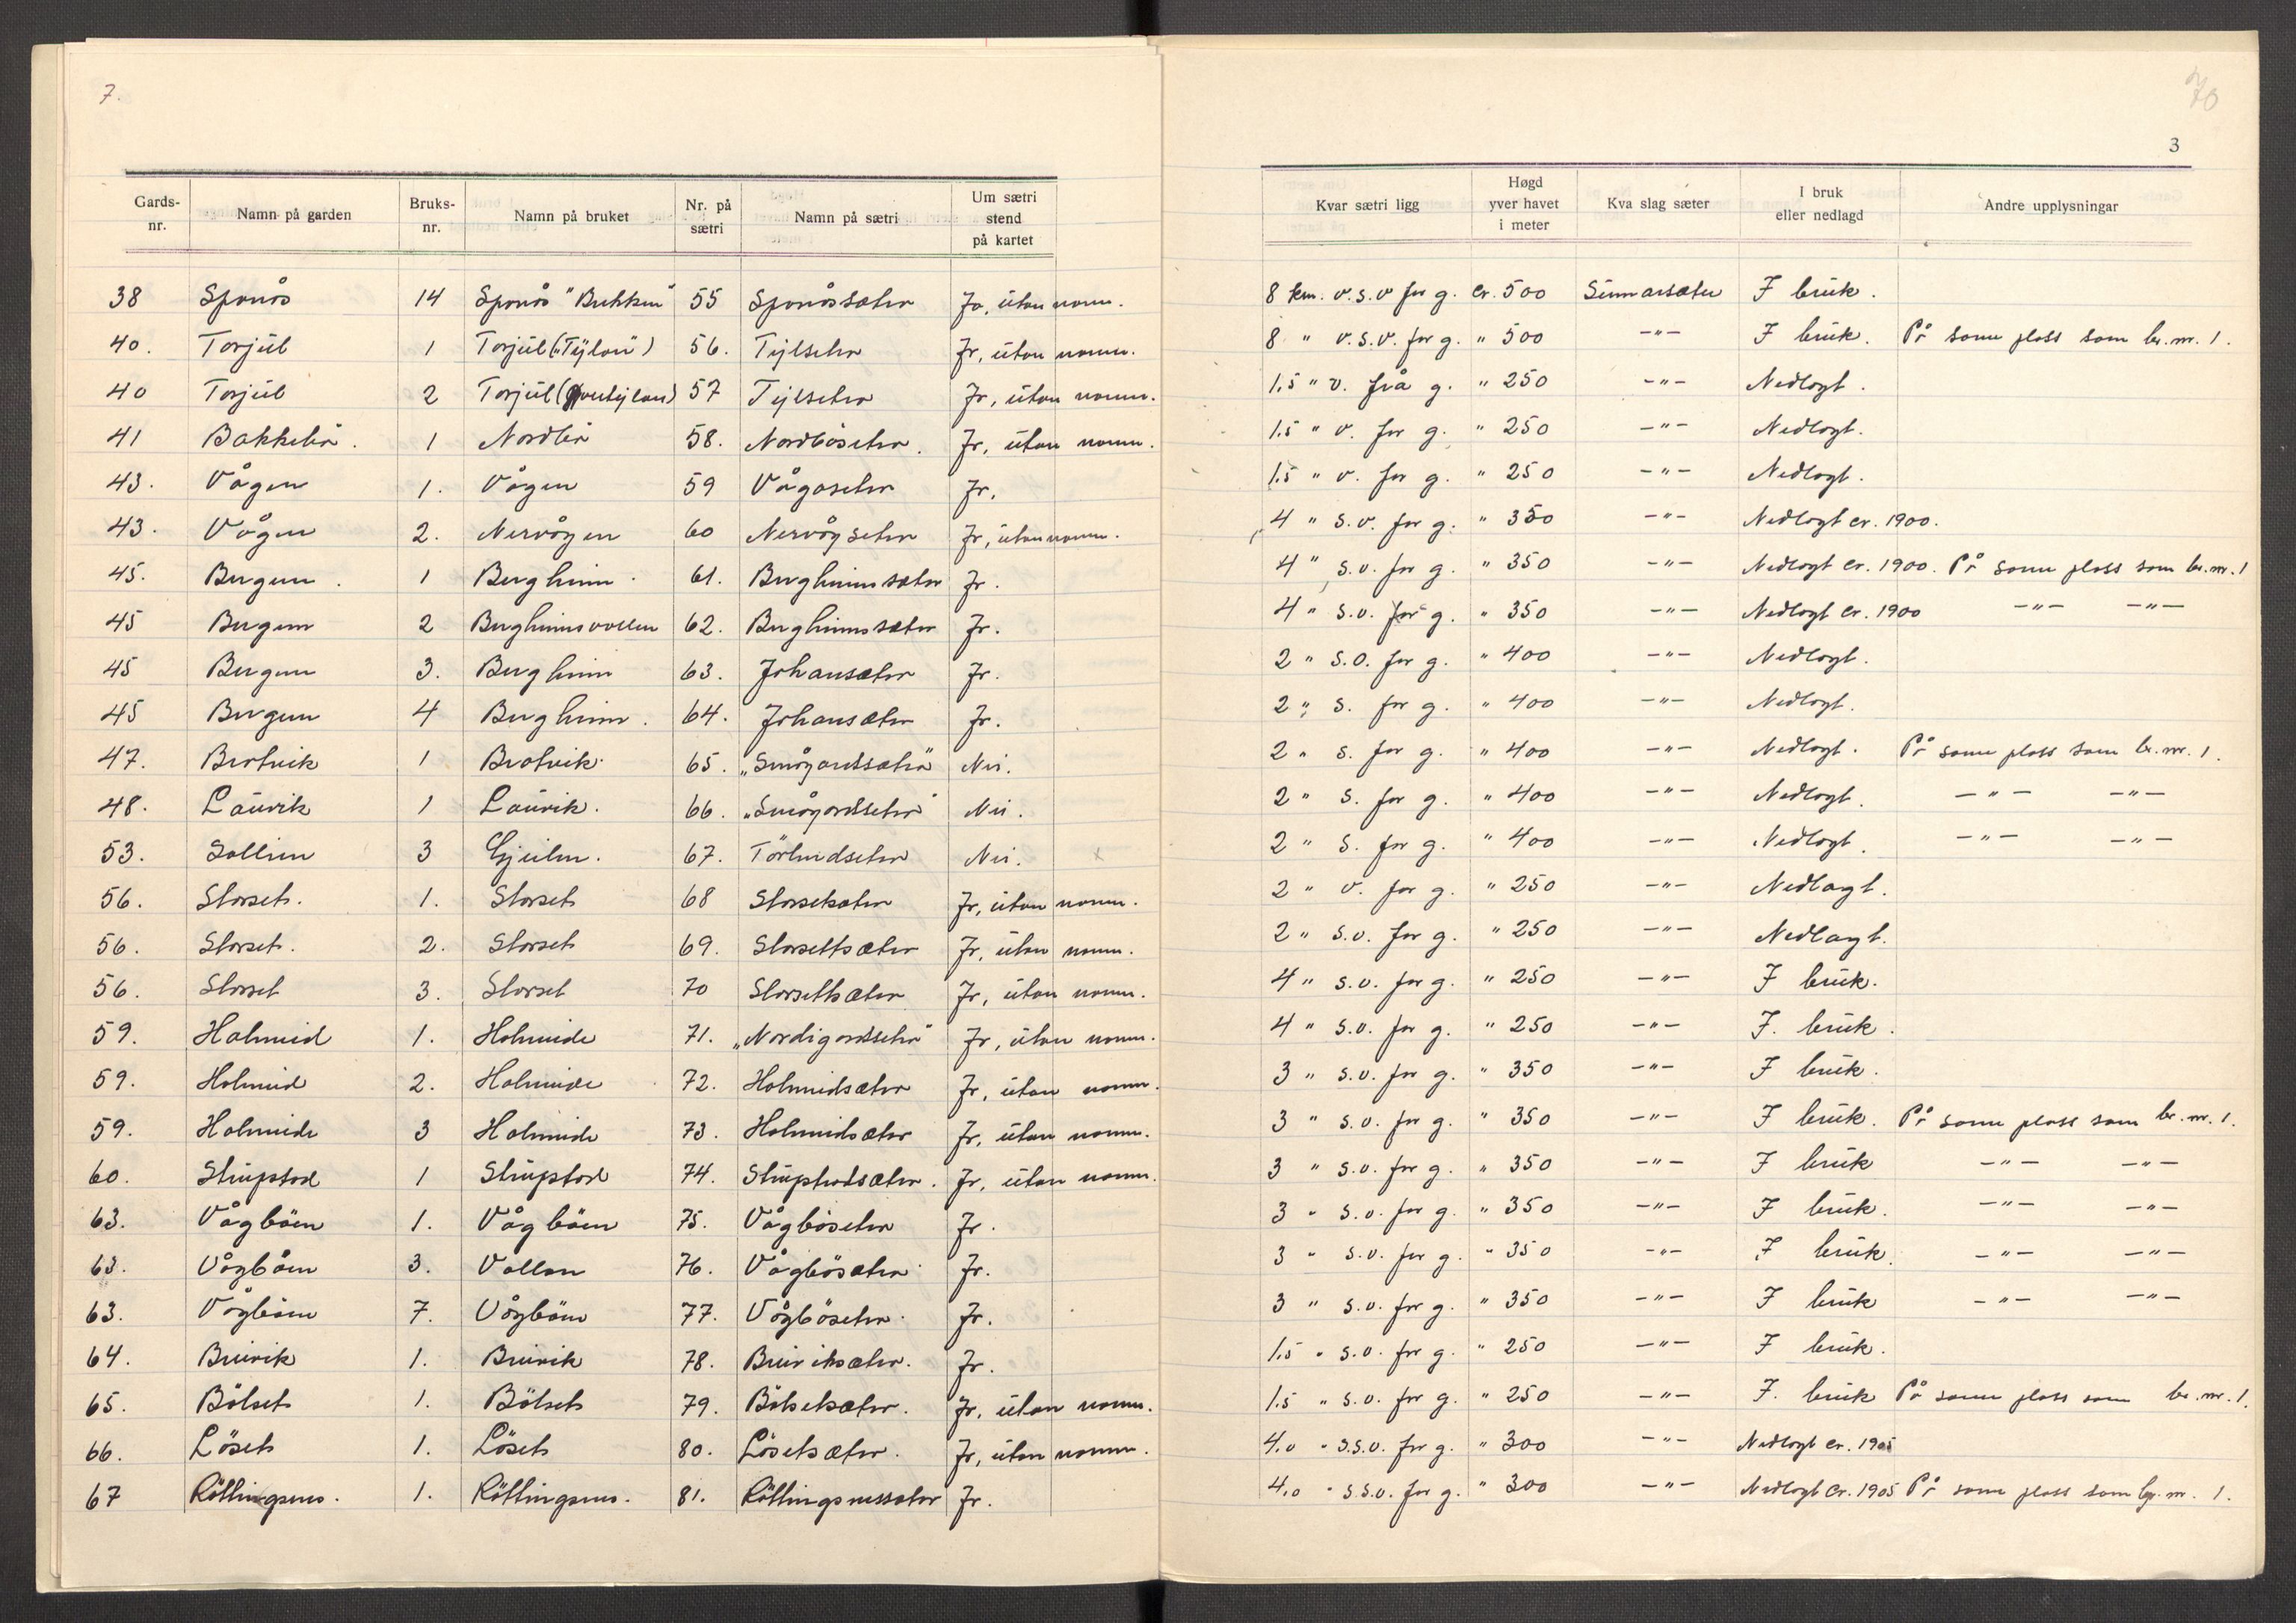 7.
Gards-nr. Namn på garden Bruks-nr. Namn på bruket Nr. på sætri Namn på sætri Um sætri stend på kartet
38 Sponås 14 Sponås "Bakken" 55 Sponåssæter Ja, utan namn.
40. Torjul 1 Torjul ("Tylan") 56. Tylseter Ja, utan namn.
40 Torjul 2 57 Tylseter Ja, utan namn.
41 Bakkeli. 1 Nordli 58. Nordliseter. Ja, utan namn.
43. Vågen 1. Vågen 59 Vågaseter Ja.
43. Vågen 2. Nervågen 60 Nervågseter Ja, utan namn.
45. Bergem. 1 Bergheim. 61. Bergheimsæter Ja.
45 Bergem 2 Bergheimsvollen 62. Bergheimssæter Ja.
45 Bergem 3. Bergheim 63. Johansæter Ja.
45 Bergem 4 Bergheim. 64. Johansæter Ja.
47. Brotvik 1 Brotvik. 65. „Smågardssætra" Nei.
48. Laurvik 1 Laurvik. 66. „Smågardsetra" Nei.
53. Sollien 3 Gjeilen. 67. Torleidseter Nei. x
56. Storset. 1. Storset 68 Storsetsæter Ja, utan namn.
56. Storset. 2. Storset 69. Storsettsæter Ja, utan namn.
56. Storset 3. Storset 70 Storsettsæter Ja, utan namn.
59. Holmeid 1. Holmeide 71. „Nordigardsetra" Ja, utan namn.
59. Holmeid 2. Holmeide 72. Holmeidsæter Ja, utan namn.
59. Holmeide 3 Holmeide 73. Holmeidsæter Ja, utan namn.
60. Strupstad 1 Strupstad 74. Strupstadsæter. Ja, utan namn.
63. Vågböen 1. Vågböen 75. Vågböseter Ja.
63. Vågböen 3. Vollan 76. Vågbösæter Ja.
63. Vågböen 7. Vågböen 77. Vågböseter. Ja.
64. Breivik 1. Breivik 78. Breiviksæter. Ja.
65. Bölset 1. Bölset 79. Bölsetsæter. Ja, utan namn.
66. Löset 1. Löset 80. Lösetsæter. Ja, utan namn.
67 Röttingsnes. 1. Röttingsnes. 81. Röttingsnessæter Ja.
70
3
Kvar sætri ligg Høgd yver havet i meter Kva slag sæter I bruk eller nedlagd Andre upplysningar
8 km. v.s.v for g. cr. 500 Sumarsæter I bruk.
8 " v.s.v. for g. " 500 —"— I bruk. På same plass som br.nr. 1.
1.5 " v. frå g. " 250 —"— Nedlagt.
1.5 " v. for g. " 250 —"— Nedlagt.
1.5 " v. for g. " 250 —"— Nedlagt.
4 " s.v. for g. " 350 —"— Nedlagt cr. 1900.
4 " s.v. for g. " 350 —"— Nedlagt cr. 1900. På same plass som br.nr. 1
4 " s.v. for g. " 350 —"— Nedlagt cr. 1900 —"— —"—
2 " s.o. for g. " 400 —"— Nedlagt.
2 " s. for g. " 400 —"— Nedlagt.
2 " s. for g. " 400 —"— Nedlagt. På same plass som br.nr. 1.
2 " s. for g. " 400 —"— Nedlagt. —"— —"—
2 " s. for g. " 400 —"— Nedlagt. —"— —"—
2 " v. for g. " 250 —"— Nedlagt.
2 " s.v. for g. " 250 —"— Nedlagt.
4 " s.v. for g. " 250 —"— I bruk.
4 " s.v. for g. " 250 —"— I. bruk.
3 " s.v. for g. " 350 —"— I bruk.
3 " s.v. for g. " 350 —"— I bruk. På same plass som br.nr. 1.
3 " s.v. for g. " 350 —"— I bruk —"— —"—
3 " s.v. for g. " 350 —"— I bruk. —"— —"—
3 " s.v. for g. " 350 —"— I bruk. —"— —"—
3 " s.v. for g. " 350 —"— I bruk —"— —"—
1.5 " s.v. for g. " 250 —"— I bruk.
1.5 " s.v. for g. " 250 —"— I. bruk På same plass som br.nr. 1.
4.0 " s.s.v. for g. " 300 —"— Nedlagt cr. 1905
4.0 " s.s.v. for g. " 300 —"— Nedlagt cr. 1905 På same plass som br.nr. 1.